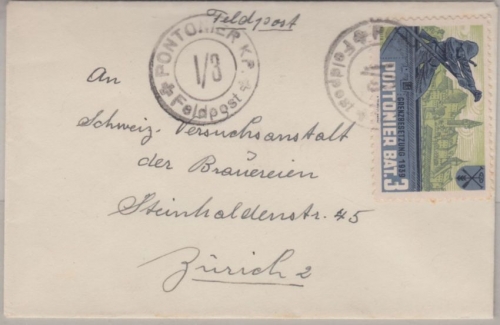 Feldpost
PONTONIER K.P.
I/3
Feldpost
Feldpost
I/3
GRENZBESETZUNG 1939
PONTONIER BAT. 3
An
Schweiz. Versuchsanstalt
der Brauereien
Steinhaldenstr. 45
Zürich 2